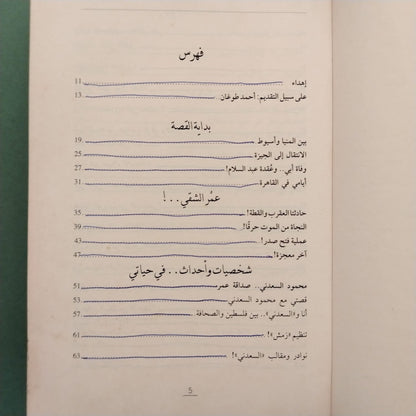 فهرس
إهداء 11
على سبيل التقديم: أحمد طوغان 13
بداية القصة
بين المنيا وأسيوط 19
الانتقال إلى الجيزة 25
وفاة أبي.. وعُقدة عبد السلام! 27
أيامي في القاهرة 31
عمُر الشقي..!
حادثتا العقرب والقطة! 35
النجاة من الموت حرقًا! 39
عملية فتح صدر! 43
آخر معجزة! 47
شخصيات وأحداث.. في حياتي
محمود السعدني.. صداقة عمر 51
قصتي مع محمود السعدني 53
أنا و«السعدني».. بين فلسطين والصحافة 57
تنظيم «زمش»! 61
نوادر ومقالب «السعدني»! 63
5